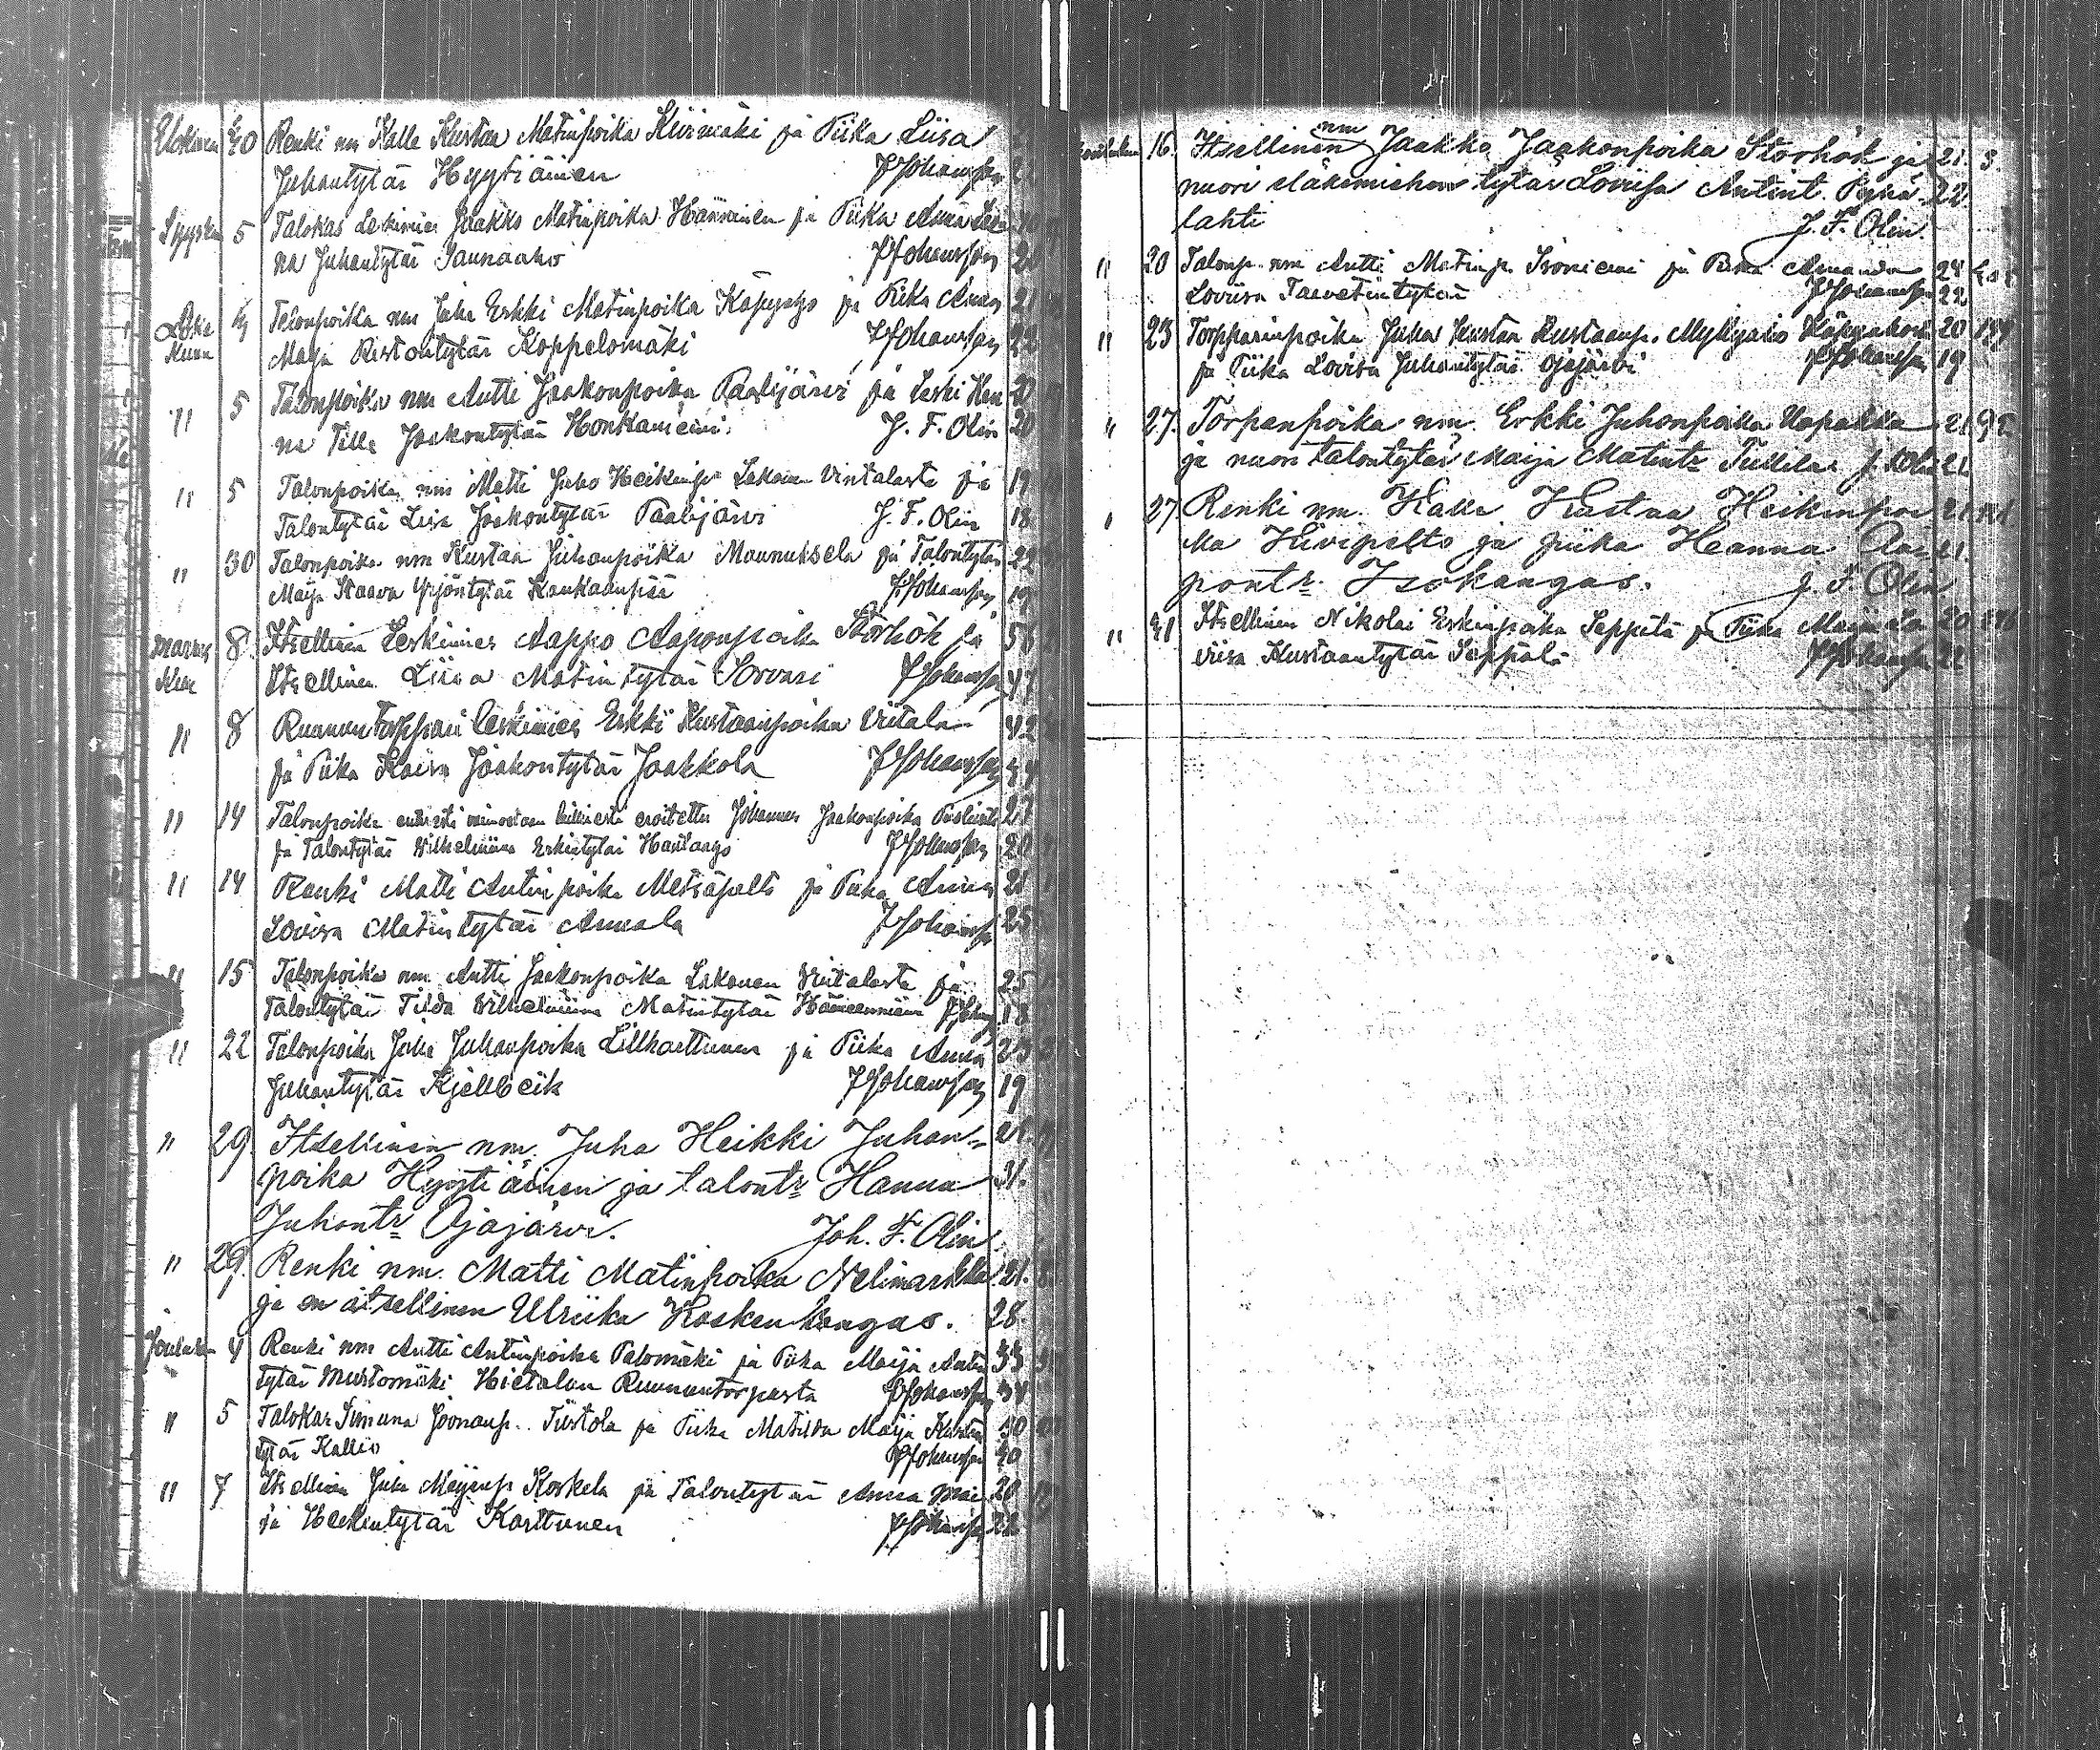 Elokuu 30 Renki nm Kalle Kustaa Matinpoika Kivimäki ja Piika Liisa
Juhantytär Hyytiäinen JJohansson
Syysku 5 Talokas Leskimies Jaakko Matinpoika Hänninen ja Piika Anna Lee
na Juhantytär Saunaaho JJohansson
Loka Kuun 4 Talonpoika nm Juha Erkki Matinpoika Käpyaho ja Piika Anna 21
Maija Ristontytär Koppelomäki JJohansson 22
" 5 Talonpoika nm Antti Jaakonpoika Paalijärvi ja Leski Han 21
na Tilla Jaakontytär Honkaniemi. J. F. Olin 20
" 5 Talonpoika nm Matti Juho Heikinp. Lakanen Vintalasta ja 19
Talontytär Liisa Jaakontytär Paalijärvi J. F. Olin 18
" 30 Talonpoika nm Kustaa Juhanpoika Maunuksela ja Talontytär 22
Maija Kaava Yrjöntytär Kaukaanpää JJohansson 19
Marras Kuu 8 Itsellinen Leskimies Aappo Aaponpoika Storhök ja 56
Itsellinen Liisa Matintytär Sorvari JJohansson 47
" 8 Ruunun Torppari Leskimies Erkki Kustaanpoika Viitala 42
ja Piika Kaisa Jaakontytär Jaakkola JJohansson 44
" 14 Talonpoika vaimostaan laillisesti eroitettu Johannes Jaakonpoika 27
ja Talontytär Vilhelmiina Erkintytär Hautaaho JJohansson 20
" 14 Renki Matti Antinpoika Metsäpelto ja Piika Anna 21
Lovisa Matintytär Annala JJohansson 25
" 15 Talonpoika nm. Antti Jaakonpoika Lakanen Viitalasta ja 25
Talontytär Tilda Vilhelmiina Matintytär Hämeenniemi JJohans 18
" 22 Talonpoika Juha Juhanpoika Lillkarttunen ja Piika Anna 23
Juhantytär Kjellbeik JJohansson 19
" 29 Itsellinen nm. Juha Heikki Juhan- 21.
poika Hyytiäinen ja talontr Hanna 31.
Juhontr Ojajärvi. Joh. F. Olin
" 29. Renki nm. Matti Matinpoika Nelimarkka 21.
ja en itsellinen Ulriika Koskenkangas. 28.
Joulukuu 4 Renki nm Antti Antinpoika Palomäki ja Piika Maija Antin 33
tytär Mustomäki Hietalan Ruununtorpasta JJohansson 34
" 5 Talokas Simuna Joonanp. Tiistola ja Piika Matilda Maija Kustaan 30
tytär Kallio JJohansson 40
" 7 Itsellinen Juha Maijanp. Koskela ja Talontytär Anna Mai 20
ja Heikintytär Karttunen JJohansson 22
Joulukuu 16. Itsellinen nm Jaakko Jaakonpoika Storhök ja 21. 3.
nuori eläkemiehen tytär Loviisa Antint. Pyhä- 22.
lahti J. F. Olin.
" 20 Talonp. nm Antti Matinp. Isoniemi ja Piika Amanda 24
Loviisa Taavetintytär JJohansson 22
" 23 Torpparinpoika Juha Kustaa Kustaanp. Myllyaho 20
ja Piika Lovisa Juhantytär Ojajärvi JJohansson 19
" 27. Torpanpoika nm. Erkki Juhonpoika Uopakka 21 92
ja nuori talontytär Maija Matintr J. F. Olin 21.
" 27 Renki nm. Kalle Kustaa Heikinpoi 21
ka Kivipelto ja piika Hanna Aa- 21.
pontr. Isokangas. J. F. Olin
" 31 Itsellinen Nikolai Erkinpoika Seppälä ja Piika Maija Lo 20
viisa Kustaantytär Seppälä JJohansson 22